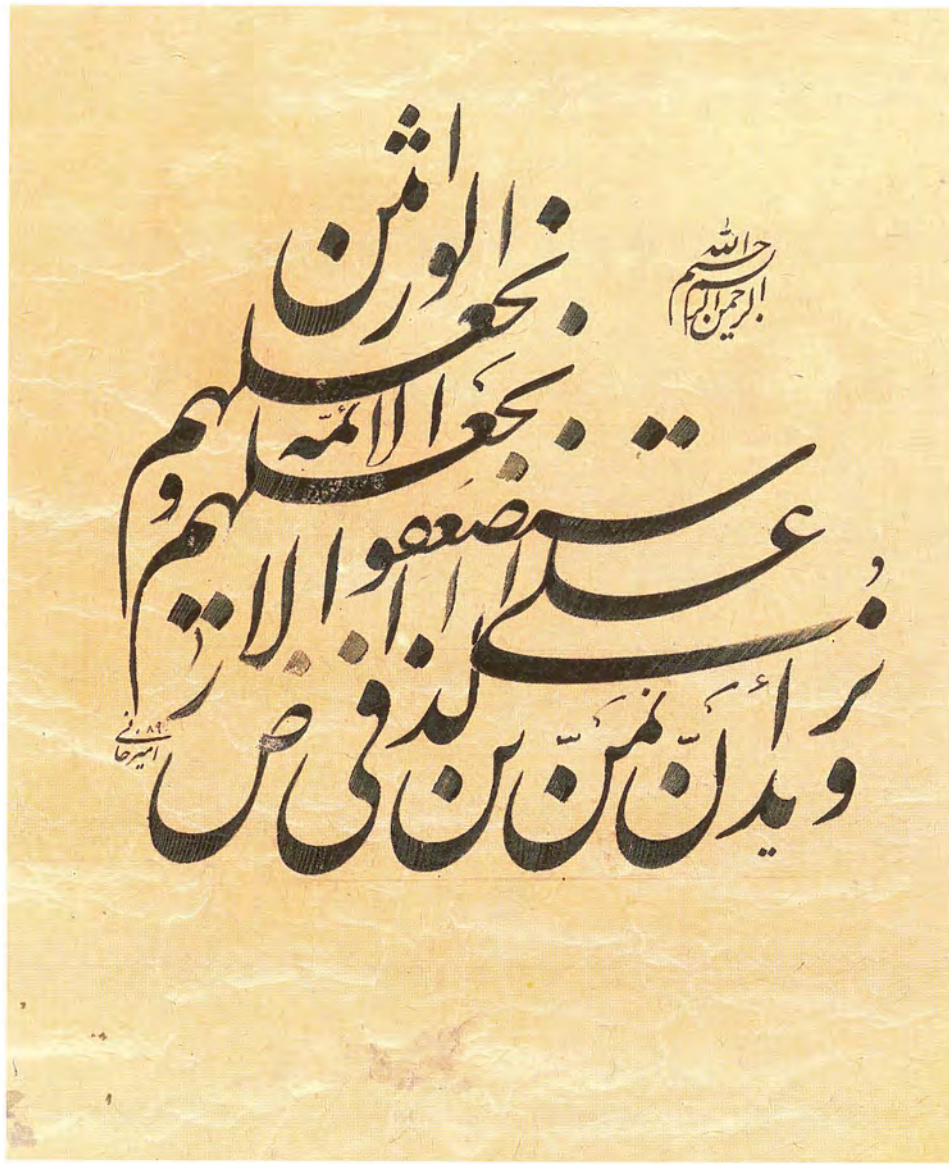 بسم الله الرحمن الرحیم
و نُرید أن نمنّ علی الذین استضعفوا فی الارض
و نجعلهم الائمّه
و نجعلهم الوارثین
امیرخانی ۸۹